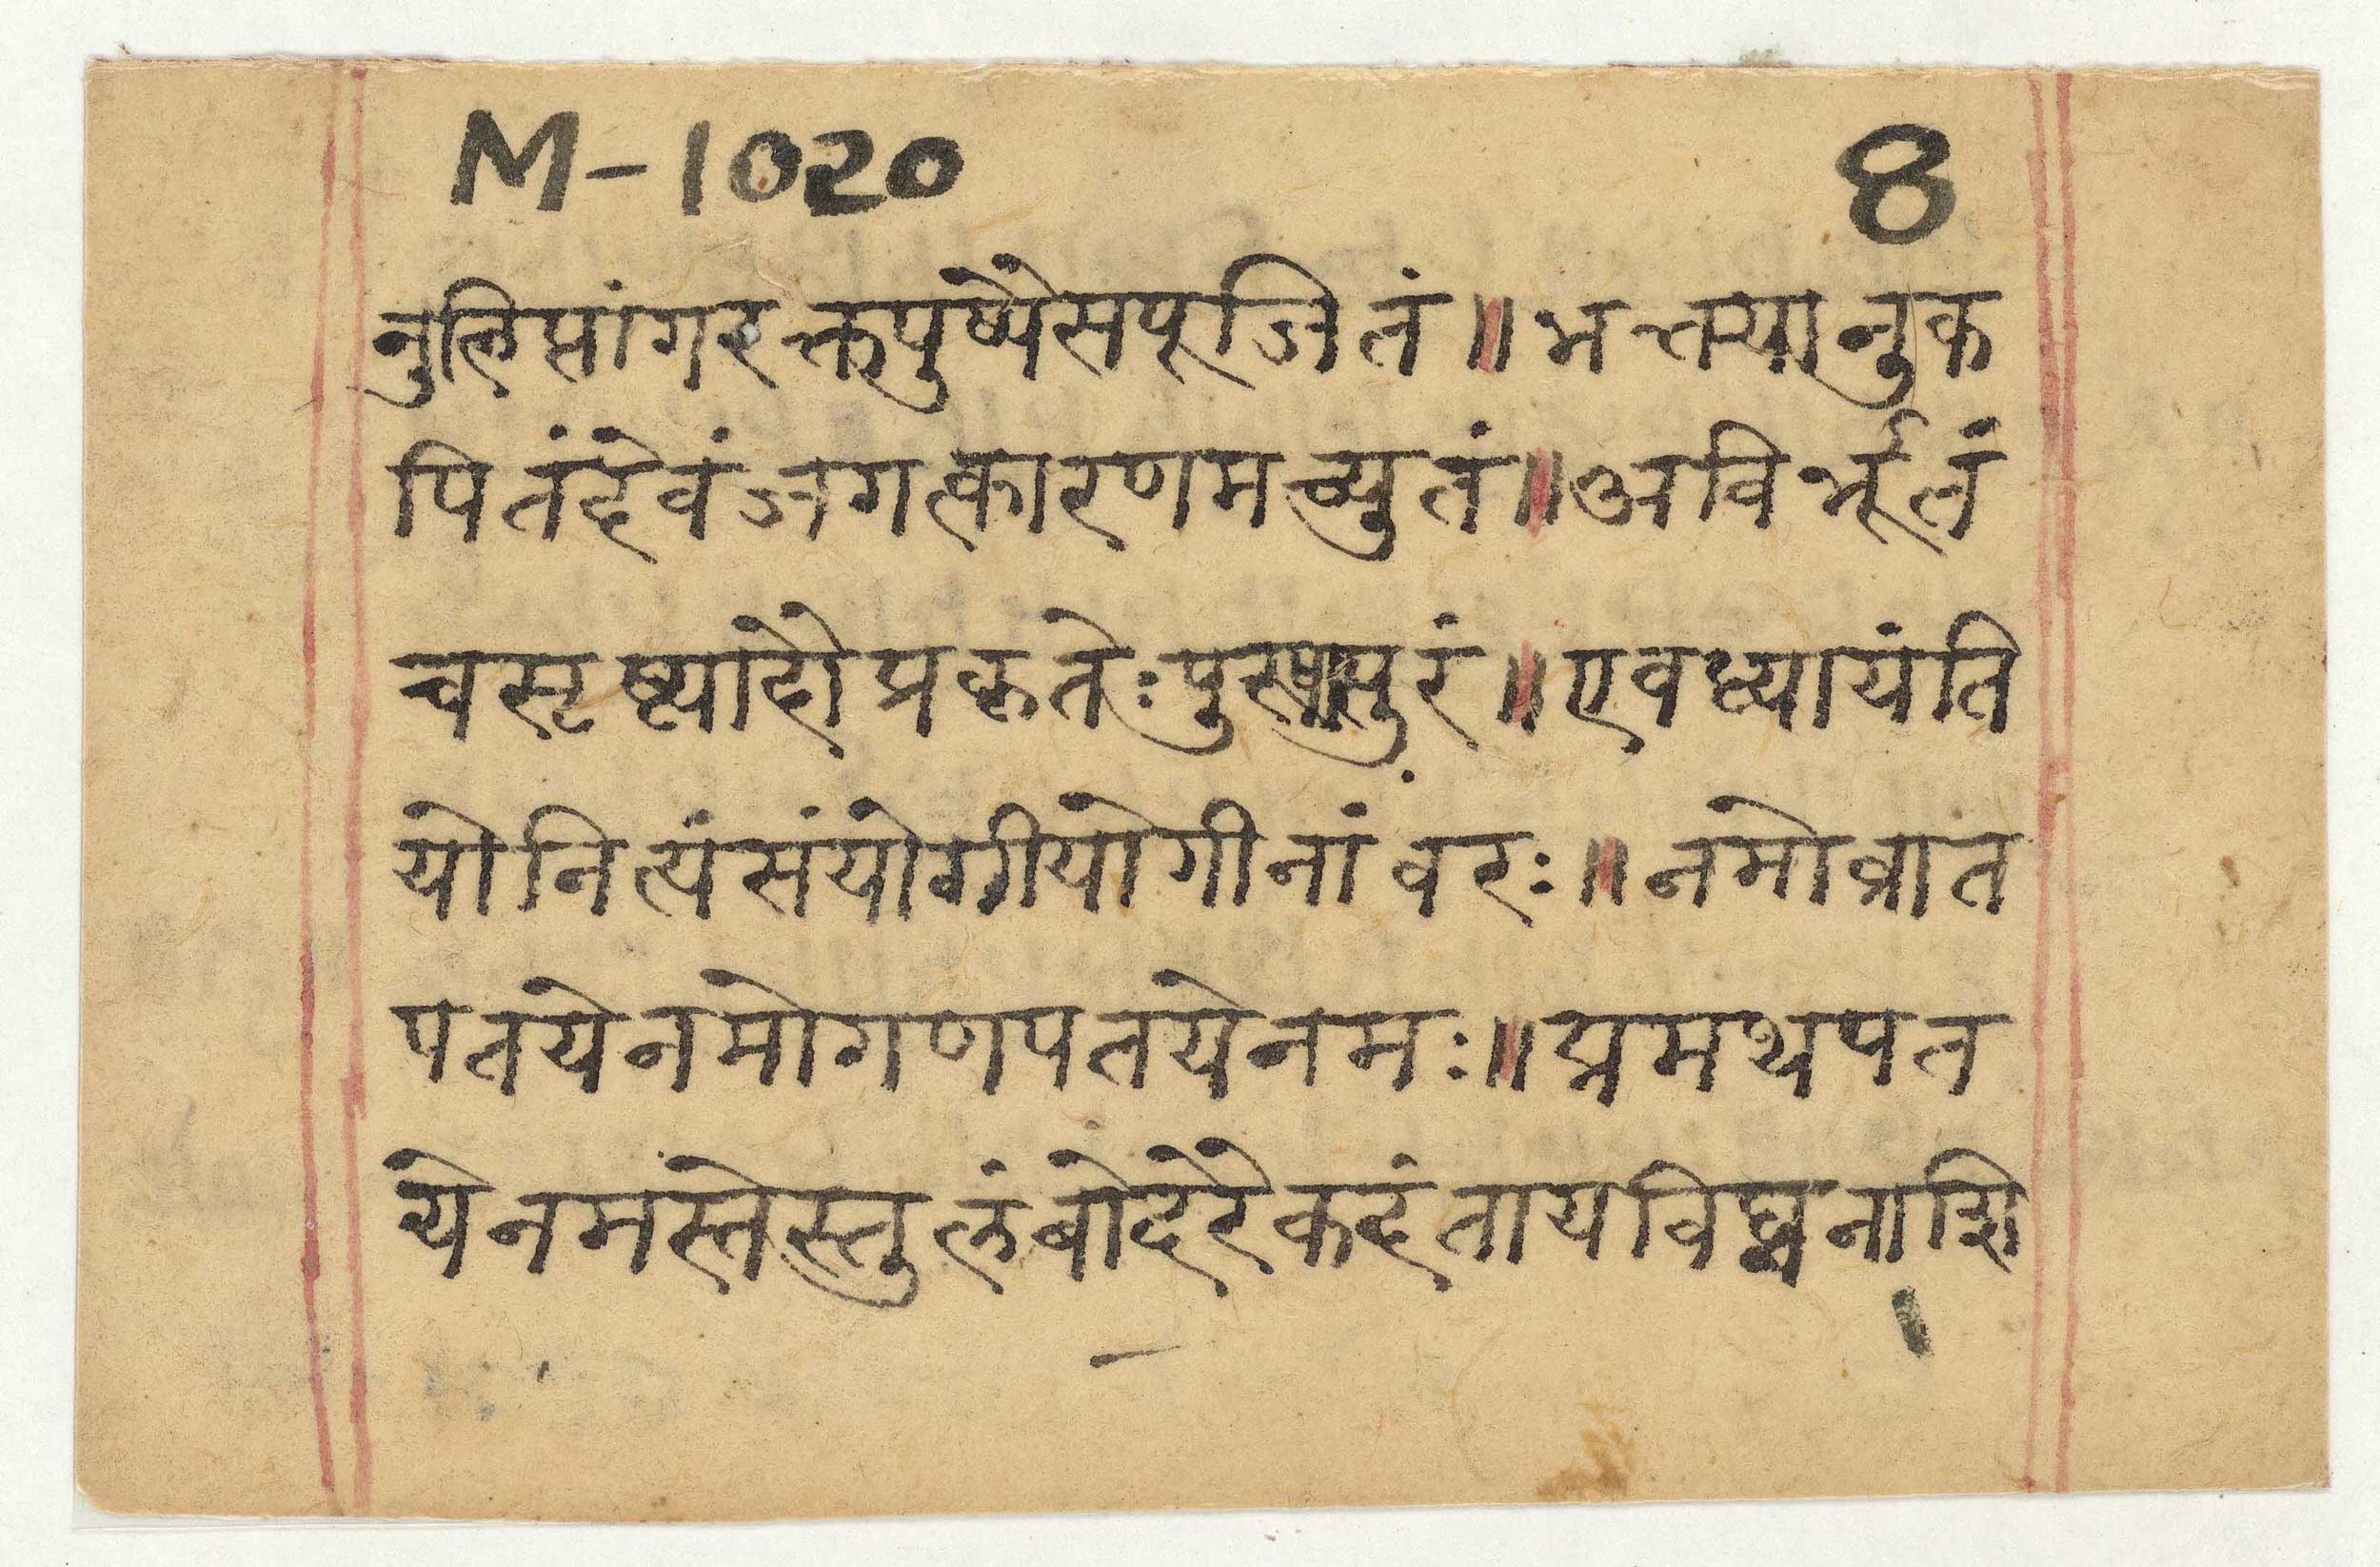 M-1020 8
नुलिप्तांगरक्तपुष्पैसपूजितं॥भक्तयानुक
पितंदेवंजगत्कारणमच्युतं॥अविर्भूतं
चसृष्ट्यादौप्रकृतेःपुरुषात्पुरं॥एवध्यायंति
योनित्यंसंयोगीयोगीनांवरः॥नमोव्रात
पतयेनमोगणपतयेनमः॥प्रमथपत
येनमस्तेस्तुलंबोदरैकदंतायविघ्ननाशि